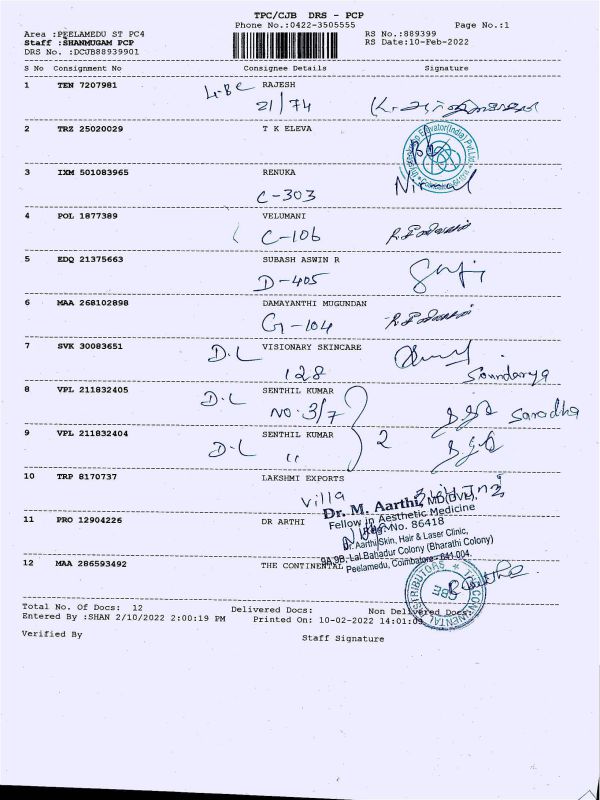 TPC/CJB DRS - PCP
Phone No.:0422-3505555 Page No.:1
Area :PEELAMEDU ST PC4 RS No.:889399
Staff :SHANMUGAM PCP RS Date:10-Feb-2022
DRS No. :DCJUB88939901
S No Consignment No Consignee Details Signature
1 TEN 7207981 RAJESH
21/74
2 TRZ 25020029 T K ELEVA
3 IXM 501083965 RENUKA
C-303
4 POL 1877389 VELUMANI
C-106
5 EDQ 21375663 SUBASH ASWIN R
D-405
6 MAA 268102898 DAMAYANTHI MUGUNDAN
G-104
7 SVK 30083651 D.L VISIONARY SKINCARE
128 Soundarya
8 VPL 211832405 D.L SENTHIL KUMAR
NO. 3/7 Sarodha
9 VPL 211832404 D.L SENTHIL KUMAR
" 2
10 TRP 8170737 LAKSHMI EXPORTS
Villa
Dr. M. Aarthi, MD(DVL),
Fellow in Aesthetic Medicine
11 PRO 12904226 DR ARTHI
Reg. No. 86418
Dr. Aarthi Skin, Hair & Laser Clinic,
9A,9B, Lal Bahadur Colony (Bharathi Colony)
Peelamedu, Coimbatore - 641 004.
12 MAA 286593492 THE CONTINENTAL
Total No. Of Docs: 12 Delivered Docs: Non Delivered Docs:
Entered By :SHAN 2/10/2022 2:00:19 PM Printed On: 10-02-2022 14:01:09
Verified By Staff Signature